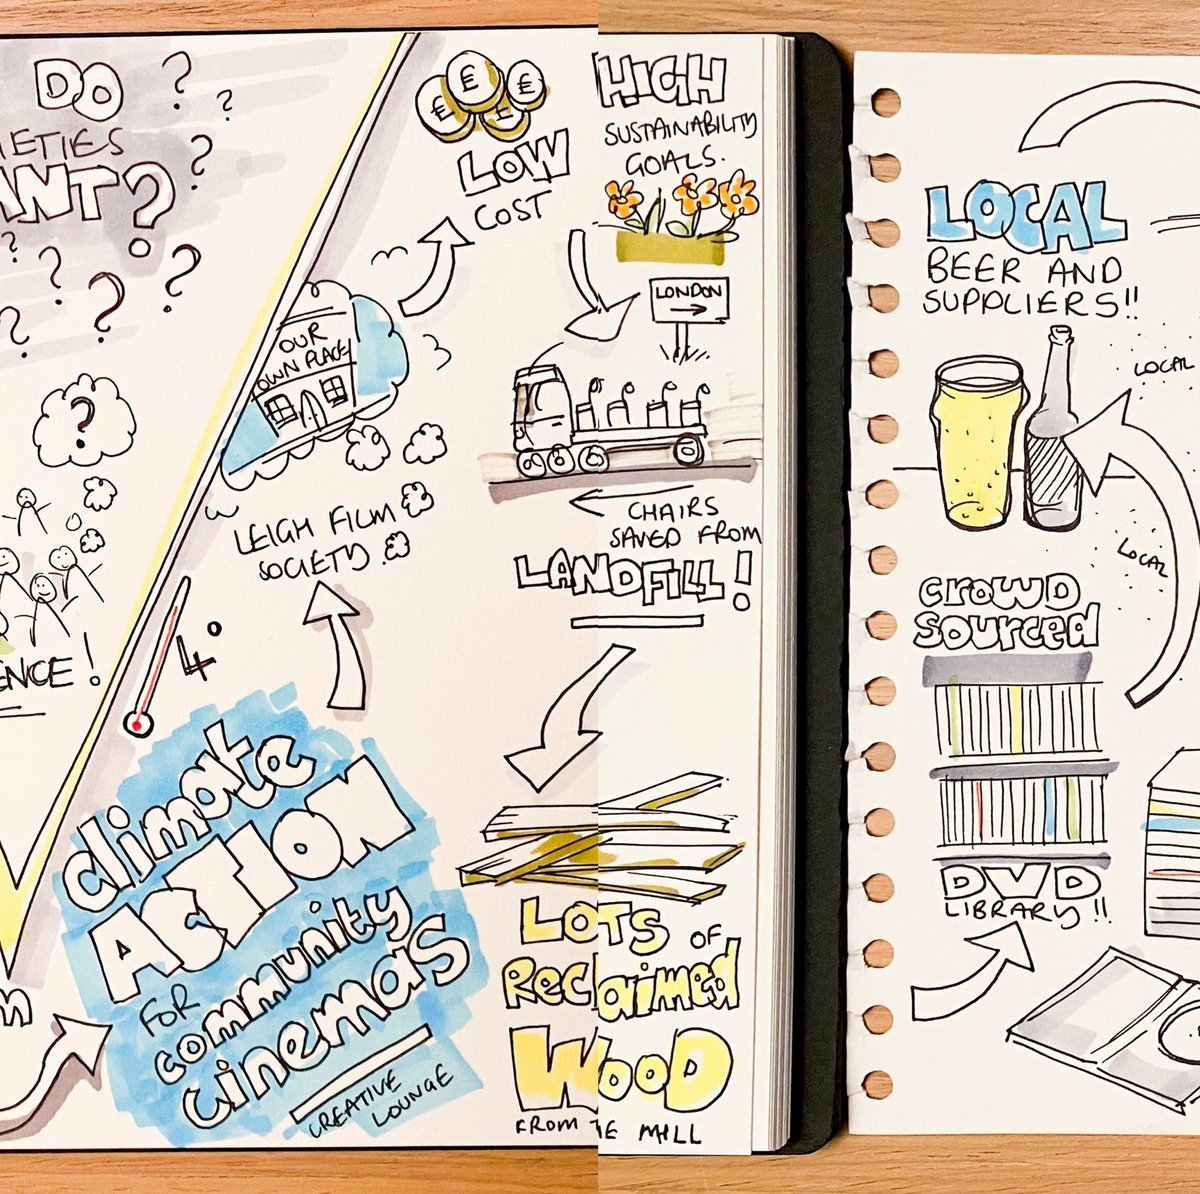 DO
?
?
IETIES
ANT?
?
?
?
?
?
?
?
?
ENCE!
4°
climate
ACTION
FOR
community
cinemas
CREATIVE
LOUNGE
LEIGH FILM
SOCIETY.
OUR
OWN PLACE!
€ € € €
LOW
COST
HIGH
SUSTAINABILITY
GOALS.
LONDON
CHAIRS
SAVED FROM
LANDFILL!
LOTS OF
RECLAIMED
WOOD
FROM THE MILL
LOCAL
BEER AND
SUPPLIERS!!
LOCAL
LOCAL
CROWD
SOURCED
DVD
LIBRARY!!